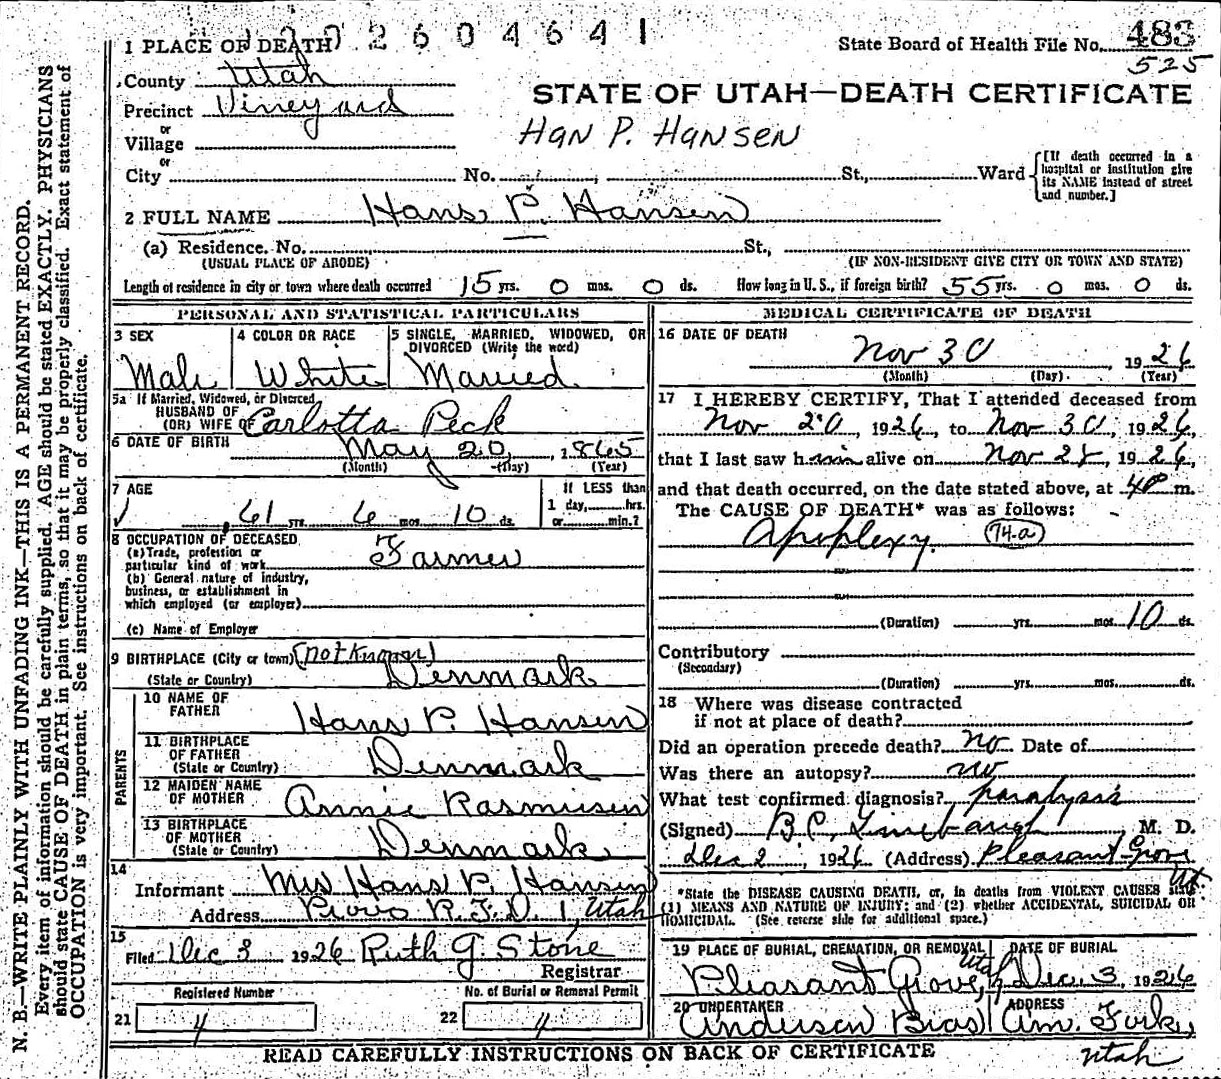 2604641
State Board of Health File No. 483
525
1 PLACE OF DEATH
County Utah
Precinct Vineyard
or
Village
or
City No. St., Ward
[If death occurred in a hospital or institution give its NAME instead of street and number.]
STATE OF UTAH—DEATH CERTIFICATE
Han P. Hansen
2 FULL NAME Hans P. Hansen
(a) Residence. No. St.,
(USUAL PLACE OF ABODE) (IF NON-RESIDENT GIVE CITY OR TOWN AND STATE)
Length of residence in city or town where death occurred 15 yrs. 0 mos. 0 ds. How long in U. S., if foreign birth? 55 yrs. 0 mos. 0 ds.
PERSONAL AND STATISTICAL PARTICULARS
3 SEX
Male
4 COLOR OR RACE
White
5 SINGLE, MARRIED, WIDOWED, OR
DIVORCED (Write the word)
Married
5a If Married, Widowed, or Divorced
HUSBAND OF
(OR) WIFE OF Carlotta Peck
6 DATE OF BIRTH May 20, 1865
(Month) (Day) (Year)
7 AGE
61 yrs. 6 mos. 10 ds.
If LESS than
1 day, hrs.
or min.?
8 OCCUPATION OF DECEASED
(a) Trade, profession or
particular kind of work Farmer
(b) General nature of industry,
business, or establishment in
which employed (or employer)
(c) Name of Employer
9 BIRTHPLACE (City or town) (not known)
(State or Country) Denmark
PARENTS
10 NAME OF
FATHER Hans P. Hansen
11 BIRTHPLACE
OF FATHER
(State or Country) Denmark
12 MAIDEN NAME
OF MOTHER Annie Rasmusen
13 BIRTHPLACE
OF MOTHER
(State or Country) Denmark
14
Informant Mrs Hans P. Hansen
Address Provo R.F.D. 1, Utah
15
Filed Dec 3 1926 Ruth G. Stone
Registrar
Registered Number No. of Burial or Removal Permit
21 4 22 4
MEDICAL CERTIFICATE OF DEATH
16 DATE OF DEATH
Nov 30 1926
(Month) (Day) (Year)
17 I HEREBY CERTIFY, That I attended deceased from
Nov 20, 1926, to Nov 30, 1926,
that I last saw him alive on Nov 28, 1926,
and that death occurred, on the date stated above, at 4P m.
The CAUSE OF DEATH* was as follows:
Apoplexy. 74.a
(Duration) yrs. mos. 10 ds.
Contributory
(Secondary)
(Duration) yrs. mos. ds.
18 Where was disease contracted
if not at place of death?
Did an operation precede death? no Date of
Was there an autopsy? no
What test confirmed diagnosis? paralysis
(Signed) B.C. Linebaugh, M. D.
Dec 2, 1926 (Address) Pleasant Grove
Ut.
*State the DISEASE CAUSING DEATH, or, in deaths from VIOLENT CAUSES state
(1) MEANS AND NATURE OF INJURY; and (2) whether ACCIDENTAL, SUICIDAL OR
HOMICIDAL. (See reverse side for additional space.)
19 PLACE OF BURIAL, CREMATION, OR REMOVAL
Pleasant Grove, Utah
DATE OF BURIAL
Dec. 3, 1926
20 UNDERTAKER
Anderson Bros
ADDRESS
Am. Fork,
Utah
READ CAREFULLY INSTRUCTIONS ON BACK OF CERTIFICATE
N. B.—WRITE PLAINLY WITH UNFADING INK—THIS IS A PERMANENT RECORD.
Every item of information should be carefully supplied. AGE should be stated EXACTLY. PHYSICIANS
should state CAUSE OF DEATH in plain terms, so that it may be properly classified. Exact statement of
OCCUPATION is very important. See instructions on back of certificate.